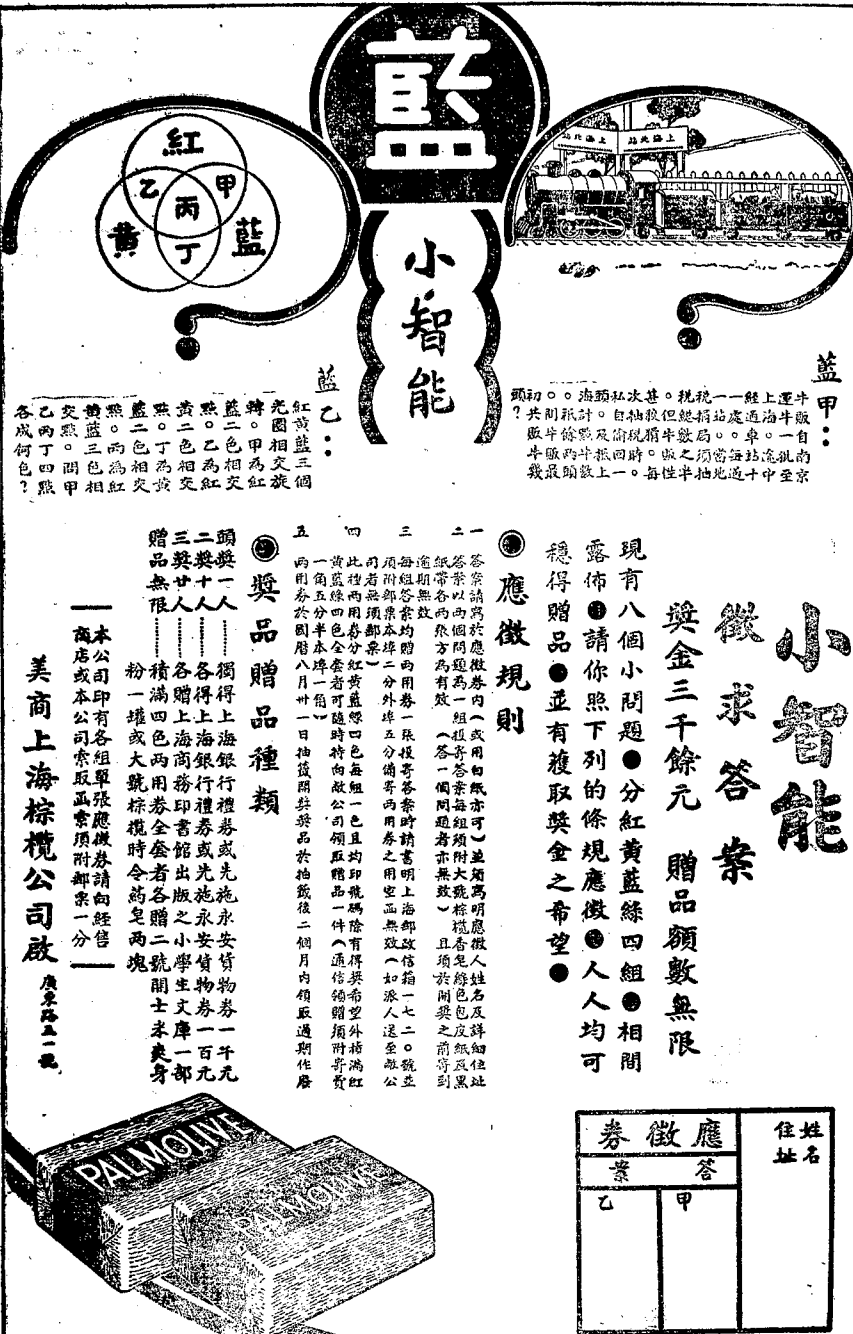 藍
小智能
上海北站
上海北站
紅
乙
甲
丙
黃
藍
丁
藍甲：
牛販自南京
運牛一批至
上海。途中
經過車站十
一處。每過
一站。當地
稅捐局須抽
稅總數之半
。但牛販性
甚狡猾。每
次抽稅時。
私自偷回一
頭。及抵上
海計點牛數
。祇餘兩頭
。問牛販最
初共販牛幾
頭？
藍乙：
紅黃藍三個
光圈相交旋
轉。甲為紅
藍二色相交
點。乙為紅
黃二色相交
點。丁為黃
藍二色相交
點。丙為紅
黃藍三色相
交點。問甲
乙丙丁四點
各成何色？
小智能
徵求答案
獎金三千餘元 贈品額數無限
現有八個小問題●分紅黃藍綠四組●相間
露佈●請你照下列的條規應徵●人人均可
穩得贈品●並有獲取獎金之希望●
◉應徵規則
一 答案請寫於應徵券內（或用白紙亦可）並須寫明應徵人姓名及詳細住址
二 答案以兩個問題為一組投寄答案每組須附大號棕欖香皂綠色包皮紙及黑
紙帶各兩張方為有效（答一個問題者亦無效）且須於開獎之前寄到
逾期無效
三 每組答案均贈兩用券一張投寄答案時請書明上海郵政信箱一七二〇號並
須附郵票本埠二分外埠五分備寄兩用券之用空函無效（如派人送至敝公
司者無須郵票）
四 此種兩用券分紅黃藍綠四色每組一色且均印號碼除有得獎希望外積滿紅
黃藍綠四色全套者可隨時持向敝公司領取贈品一件（通信領贈須附寄費
一角五分半本埠一角）
五 兩用券於國曆八月卅一日抽籤開獎獎品於抽籤後二個月內領取過期作廢
◉獎品贈品種類
頭獎一人……獨得上海銀行禮券或先施永安貨物券一千元
二獎十人……各得上海銀行禮券或先施永安貨物券一百元
三獎廿人……各贈上海商務印書館出版之小學生文庫一部
贈品無限……積滿四色兩用券全套者各贈二號開士米爽身
粉一罐或大號棕欖時令藥皂兩塊
本公司印有各組單張應徵券請向經售
商店或本公司索取函索須附郵票一分
美商上海棕欖公司啟 廣東路五一號
PALMOLIVE
PALMOLIVE
姓名
住址
應徵券
答案
甲
乙